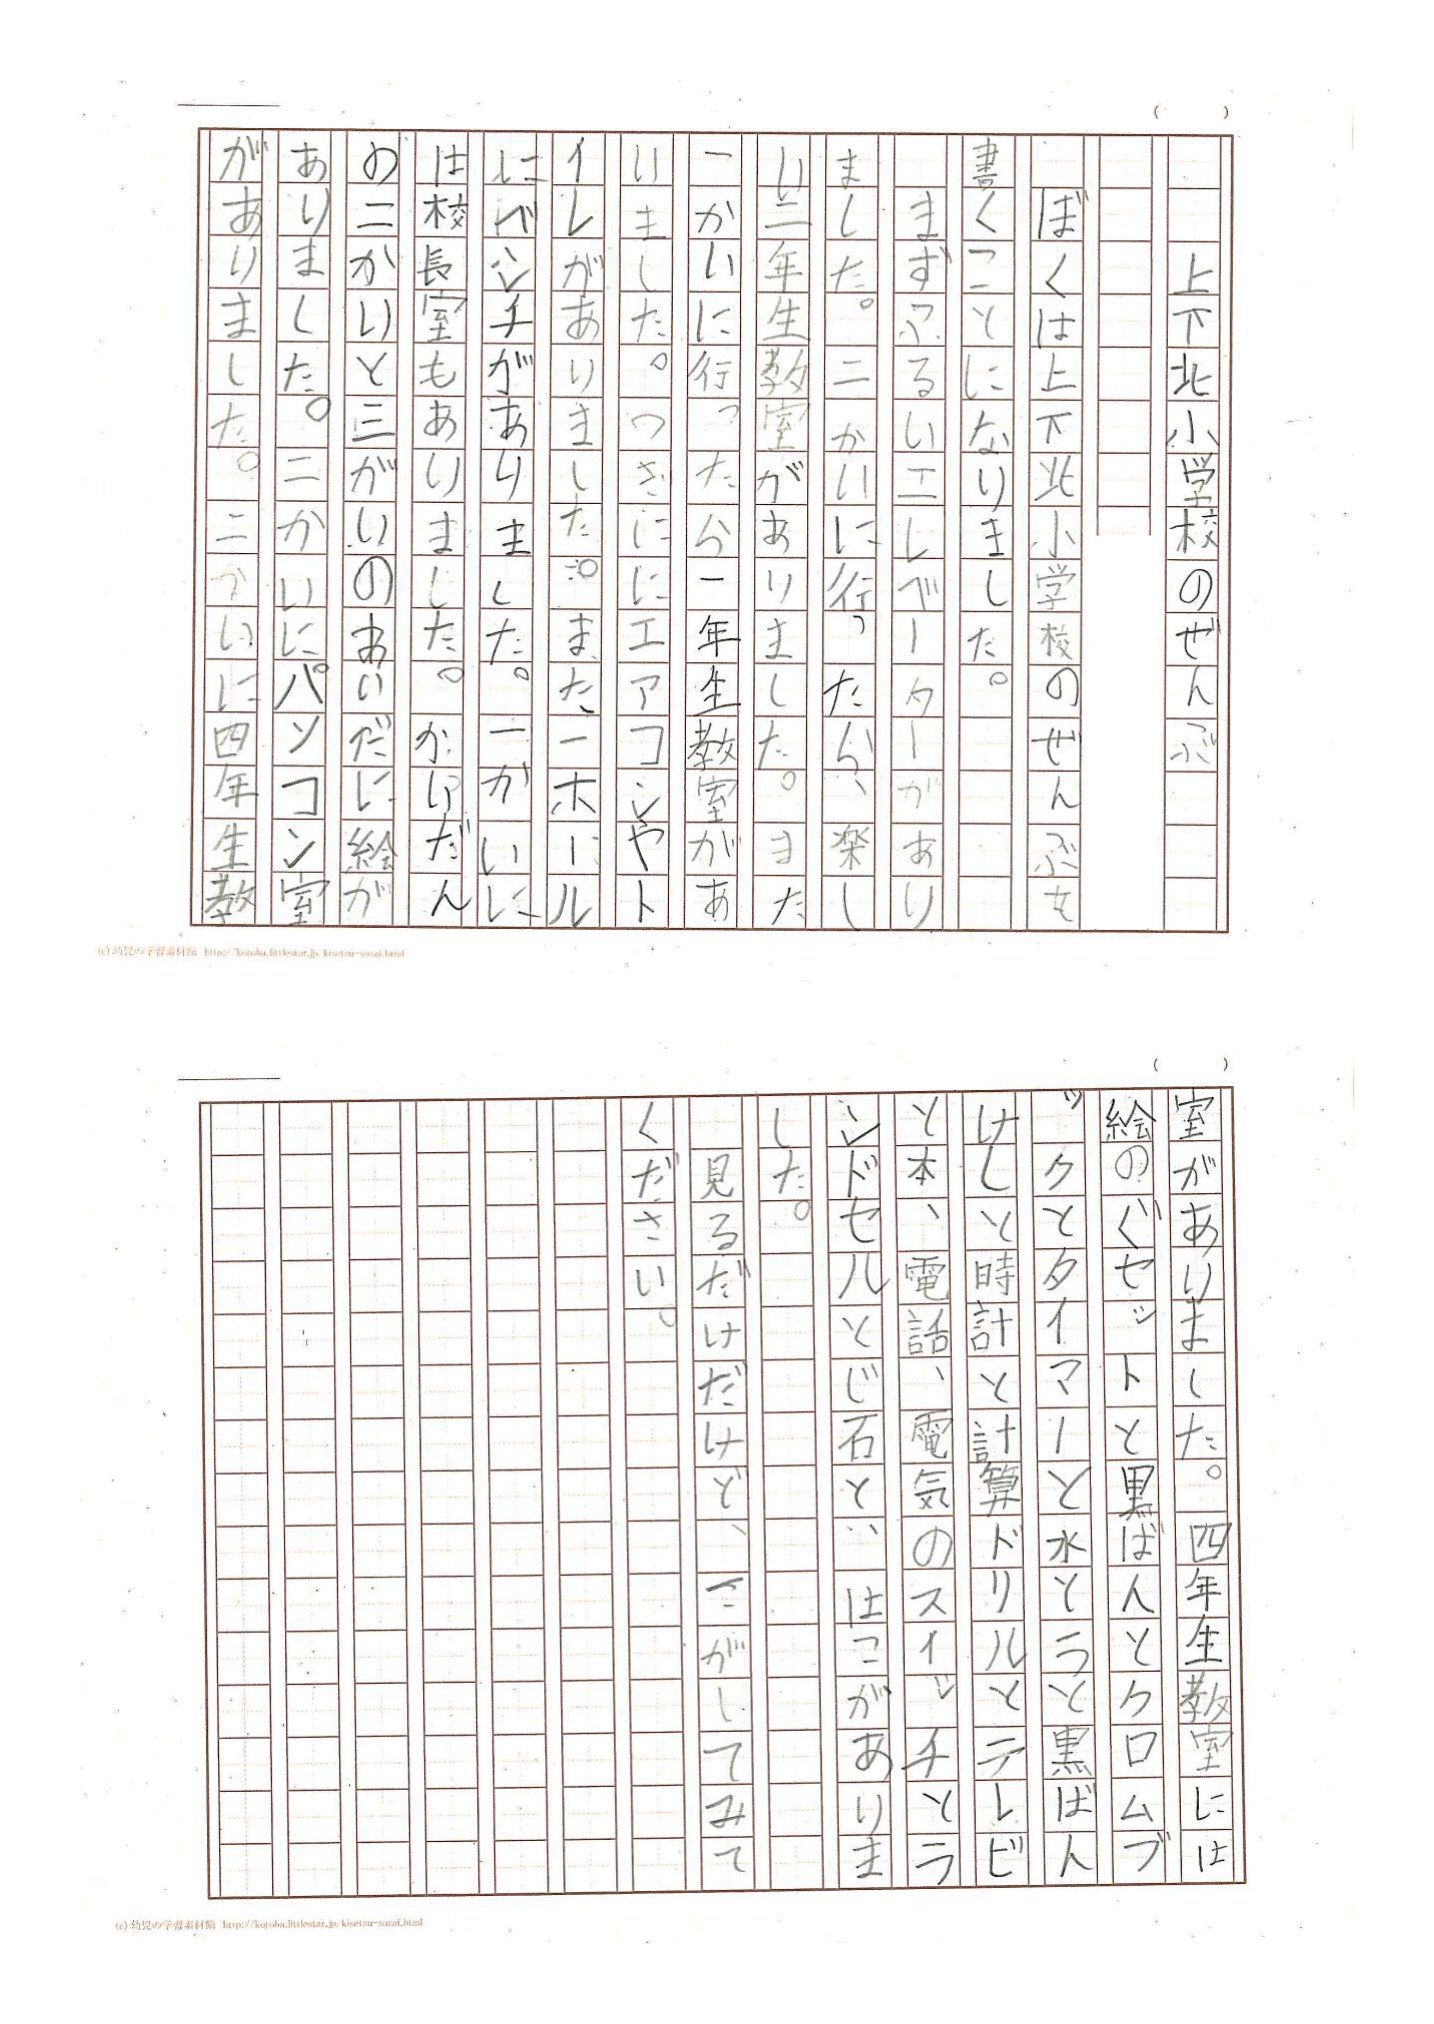 上下北小学校のぜんぶ
ぼくは上下北小学校のぜんぶを
書くことになりました。
まずふるいエレベーターがあり
ました。二かいに行ったら、楽し
い二年生教室がありました。また
一かいに行ったら一年生教室があ
いました。つぎににエアコンやト
イレがありました。また、一ホール
にベンチがありました。一かいに
は校長室もありました。かいだん
の二かいと三がいのあいだに絵が
ありました。二かいにパソコン室
がありました。二かいに四年生教
(c) 幼児の学習素材館 http://kotoba.littlestar.jp/kisetsu-sozai.html
室がありました。四年生教室には
絵のぐセットと黒ばんとクロムブ
ックとタイマーと水とラと黒ばん
けしと時計と計算ドリルとテレビ
と本、電話、電気のスイッチとラ
ンドセルとじ石と、はこがありま
した。
見るだけだけど、さがしてみて
ください。
(c) 幼児の学習素材館 http://kotoba.littlestar.jp/kisetsu-sozai.html